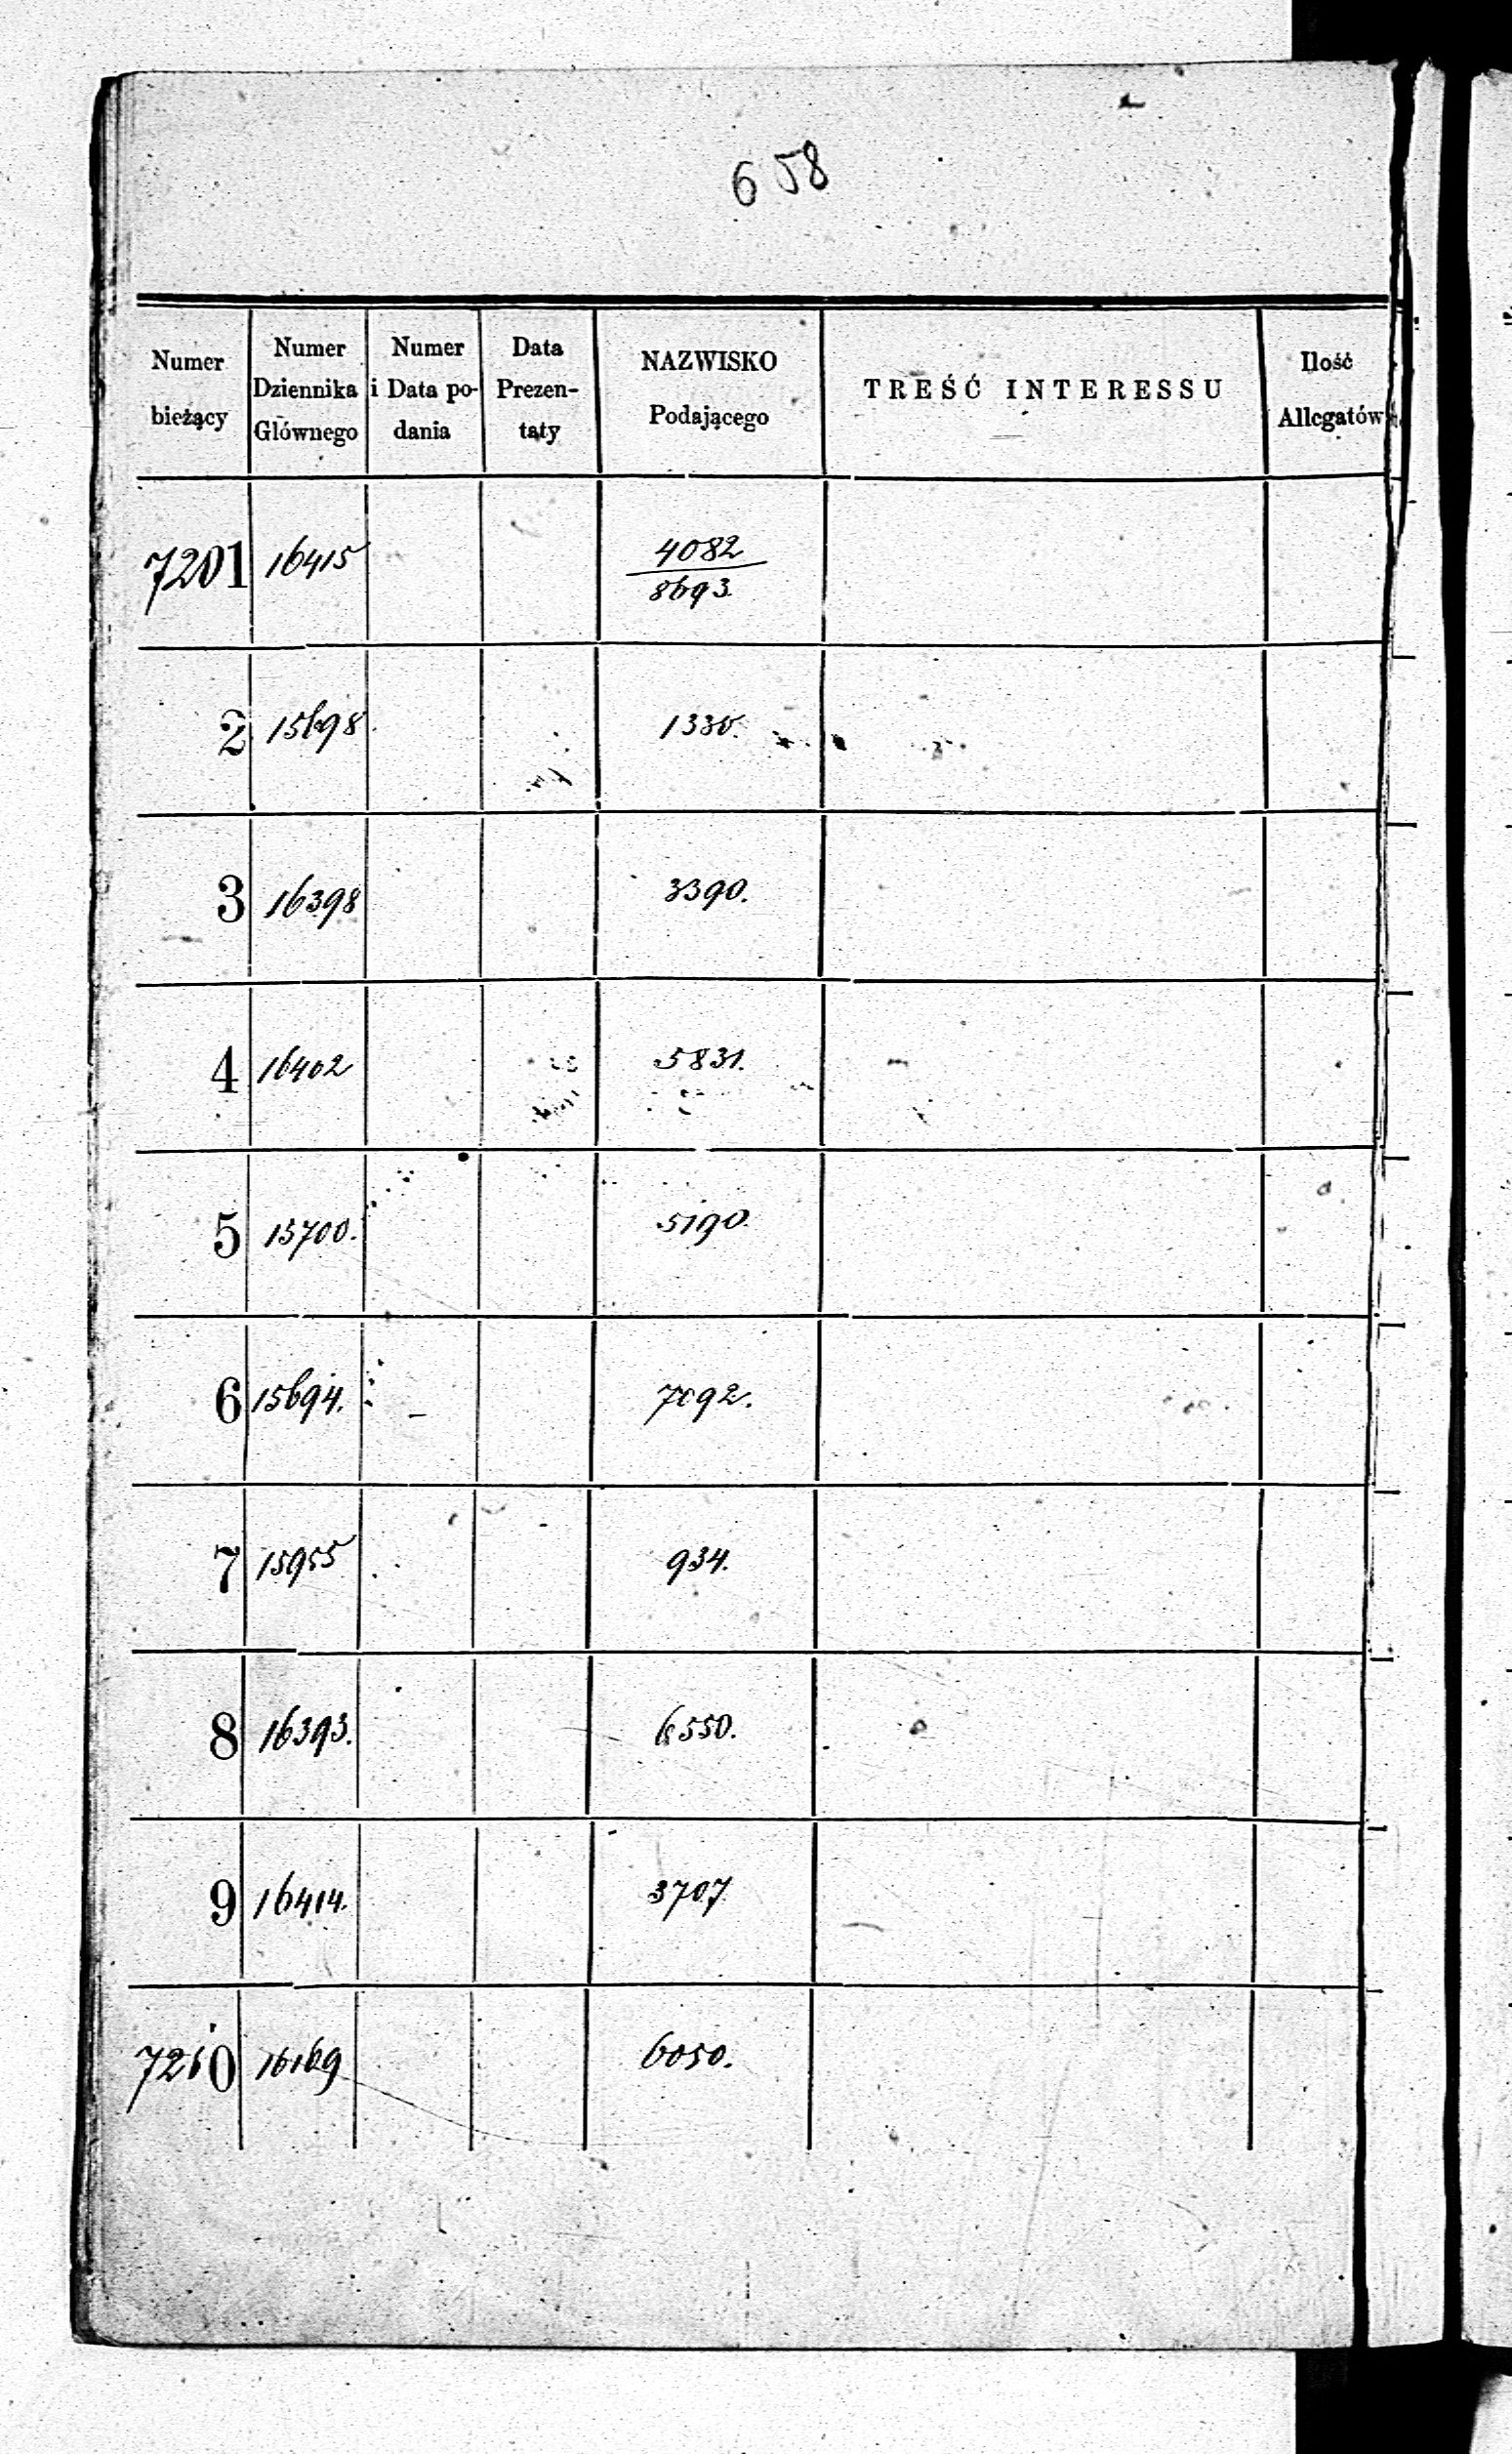 658
Numer bieżący | Numer Dziennika Głównego | Numer i Data podania | Data Prezentaty | NAZWISKO Podającego | TREŚĆ INTERESSU | Ilość Allegatów
7201 | 16415 | 4082 / 8693.
2 | 15698 | 1330.
3 | 16398 | 3390.
4 | 16402 | 5831.
5 | 15700. | 5190.
6 | 15694. | 7092.
7 | 15955 | 934.
8 | 16393. | 6550.
9 | 16414. | 3707.
7210 | 16169 | 6050.